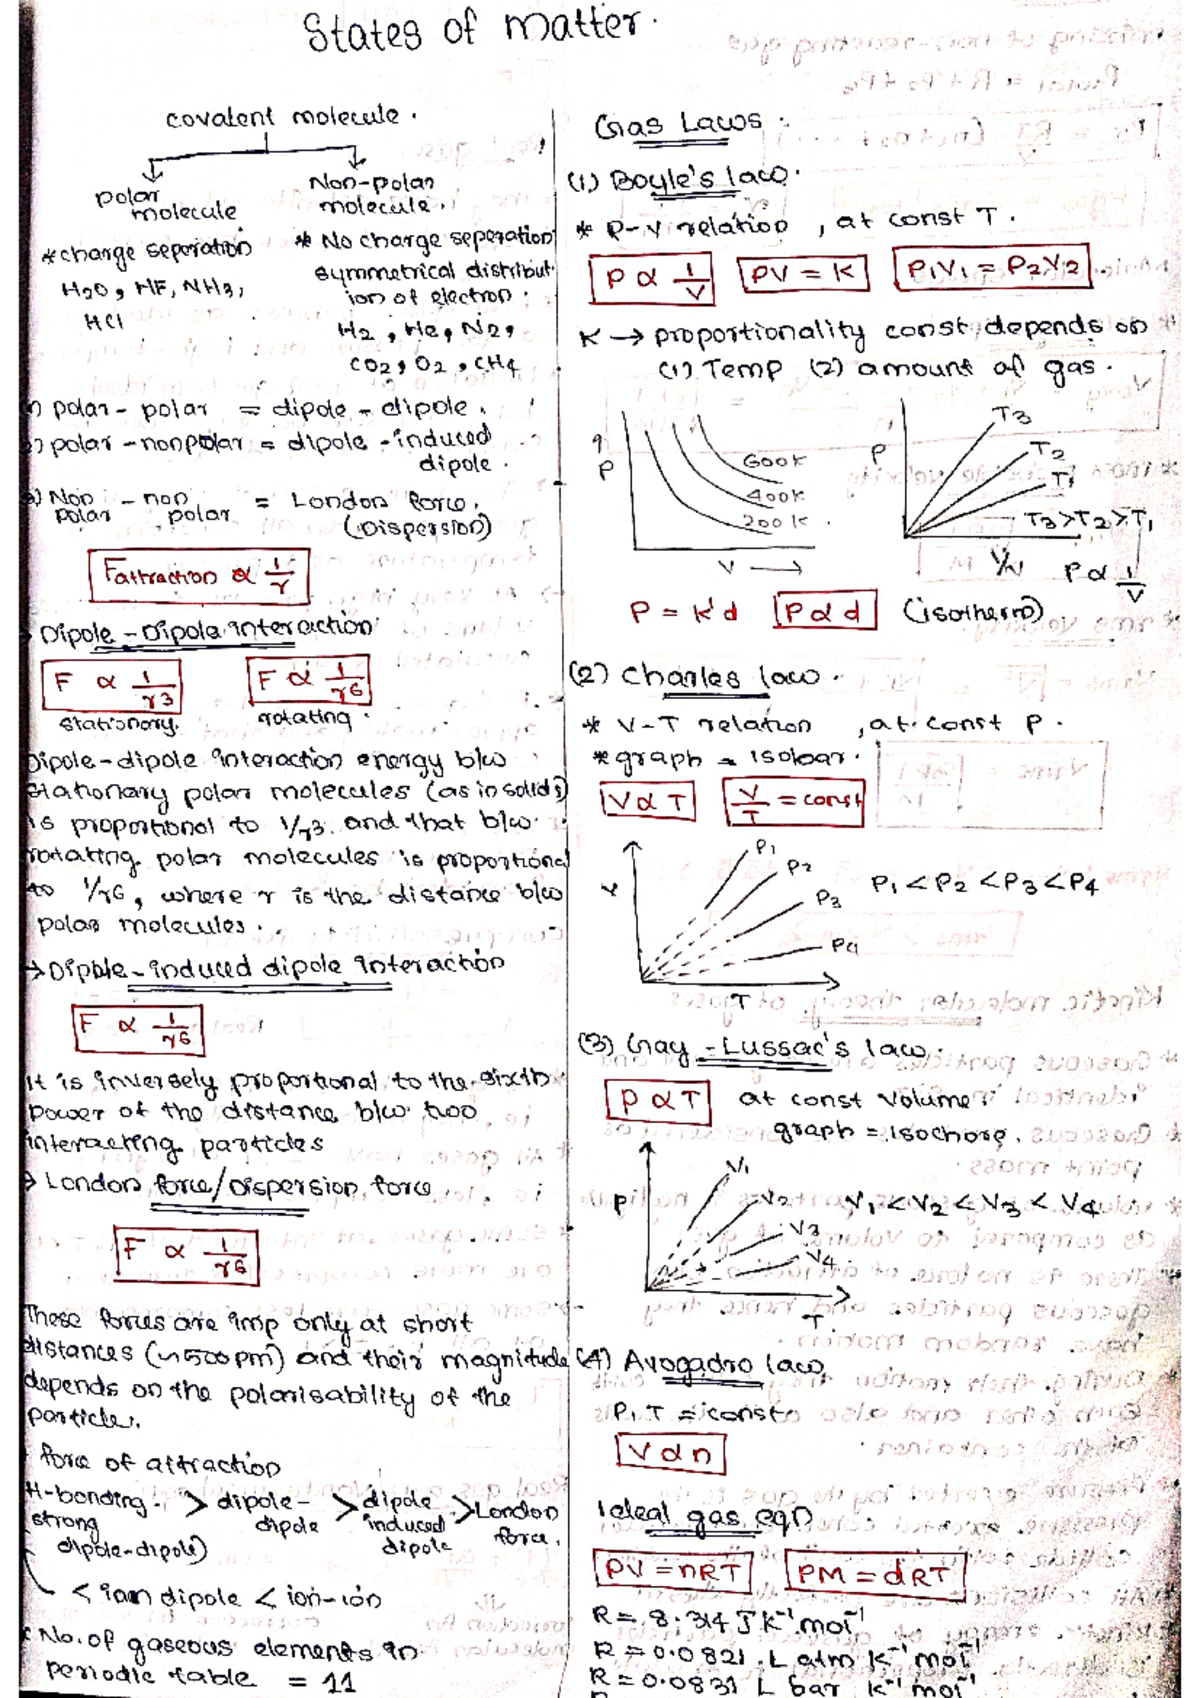 States of matter.
covalent molecule.
polar molecule
Non-polar molecule.
*charge seperation
H2O, HF, NH3,
HCl
* No charge seperation
symmetrical distribut
ion of electron.
H2, He, N2,
CO2, O2, CH4
polar - polar = dipole - dipole.
polar - nonpolar = dipole - induced
dipole.
Non polar - non polar = London force.
(Dispersion)
Fattraction ∝ 1/r
Dipole - Dipole interaction
F ∝ 1/r3
F ∝ 1/r6
stationary.
rotating.
Dipole-dipole interaction energy b/w
stationary polar molecules (as in solids)
is proportional to 1/r3 and that b/w
rotating polar molecules is proportional
to 1/r6, where r is the distance b/w
polar molecules.
→ Dipole - induced dipole interaction
F ∝ 1/r6
It is inversely proportional to the sixth
power of the distance b/w two
interacting particles
→ London force/Dispersion force
F ∝ 1/r6
These forces are imp only at short
distances (~500pm) and their magnitude
depends on the polarisability of the
particle.
force of attraction
H-bonding > dipole-dipole > dipole induced dipole > London force.
strong
dipole-dipole)
< ion dipole < ion-ion
* No. of gaseous elements in
periodic table = 11
Gas Laws.
(1) Boyle's law.
* P-V relation, at const T.
P ∝ 1/V
PV = K
P1V1 = P2V2
K → proportionality const depends on
(1) Temp (2) amount of gas.
P
600K
400K
200K
V →
P
T3
T2
T1
T3>T2>T1
1/V
P ∝ 1/V
P = K'd
P ∝ d
(isotherm)
(2) Charles law.
* V-T relation, at const P.
* graph = isobar.
V ∝ T
V/T = const
V
P1
P2
P3
P4
T
P1 < P2 < P3 < P4
(3) Gay-Lussac's law.
P ∝ T
at const volume
graph = Isochore.
P
V1
V2
V3
V4
T
V1 < V2 < V3 < V4
(4) Avogadro law
P, T = const
V ∝ n
Ideal gas eqn
PV = nRT
PM = dRT
R = 8.314 J K-1 mol-1
R = 0.0821 L atm K-1 mol-1
R = 0.0831 L bar K-1 mol-1